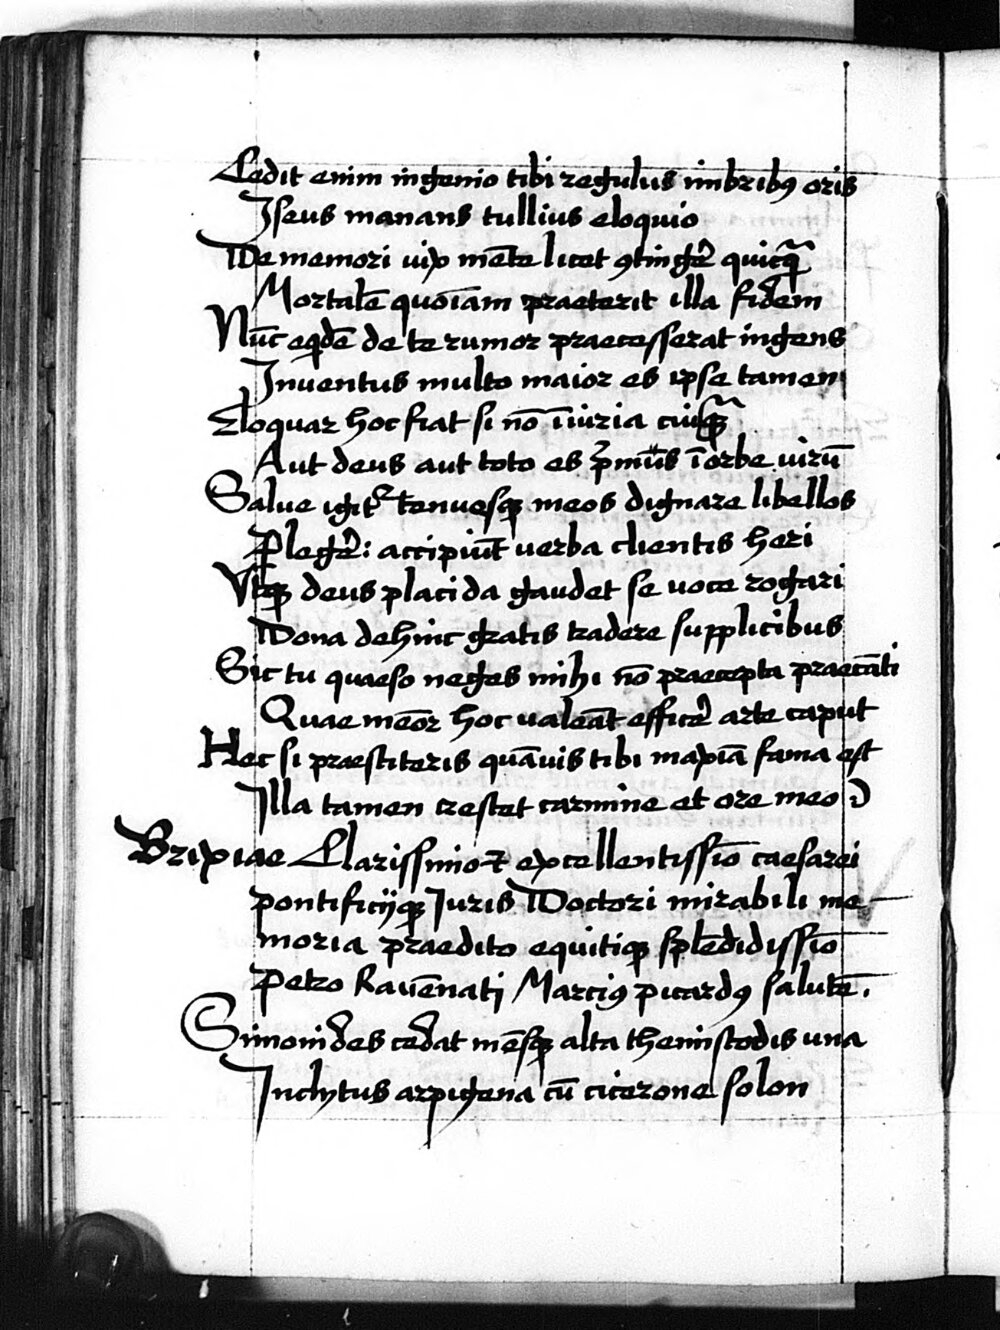 Cedit enim ingenio tibi regulus imbribꝯ oris
Iseus manans tullius eloquio
De memori uix mēte licet ꝯtingẽ quicq̃
Mortalē quoīam praeterit illa fidem
Nūc eqdē de te rumor praecesserat ingens
Inuentus multo maior es ipse tamen
Eloquar hoc fiat si nō īiuria cuiq̃
Aut deus aut toto es p̄mus ī orbe uirū
Salue igit᷑ tenuesqꝫ meos dignare libellos
Ꝑlegẽ: accipiūt uerba clientis heri
Vtqꝫ deus placida gaudet se uoce rogari
Dona dehinc gratis tradere supplicibus
Sic tu quaeso neges mihi nō praecepta praecāti
Quae meōr hoc ualeāt efficẽ arte caput
Hec si praestiteris quāuis tibi maxīa fama est
Illa tamen crestet carmine et ore meo
Brixiae Clarissimo ⁊ excellentissīo caesarei
pontificijqꝫ Iuris Doctori mirabili me
moria praedito equitiqꝫ splēdidissīo
Petro Rauēnati Marciꝯ picardꝯ salutē.
Simonides cedat mēsqꝫ alta themistodis una
Inclytus arpigena cū cicerone solon